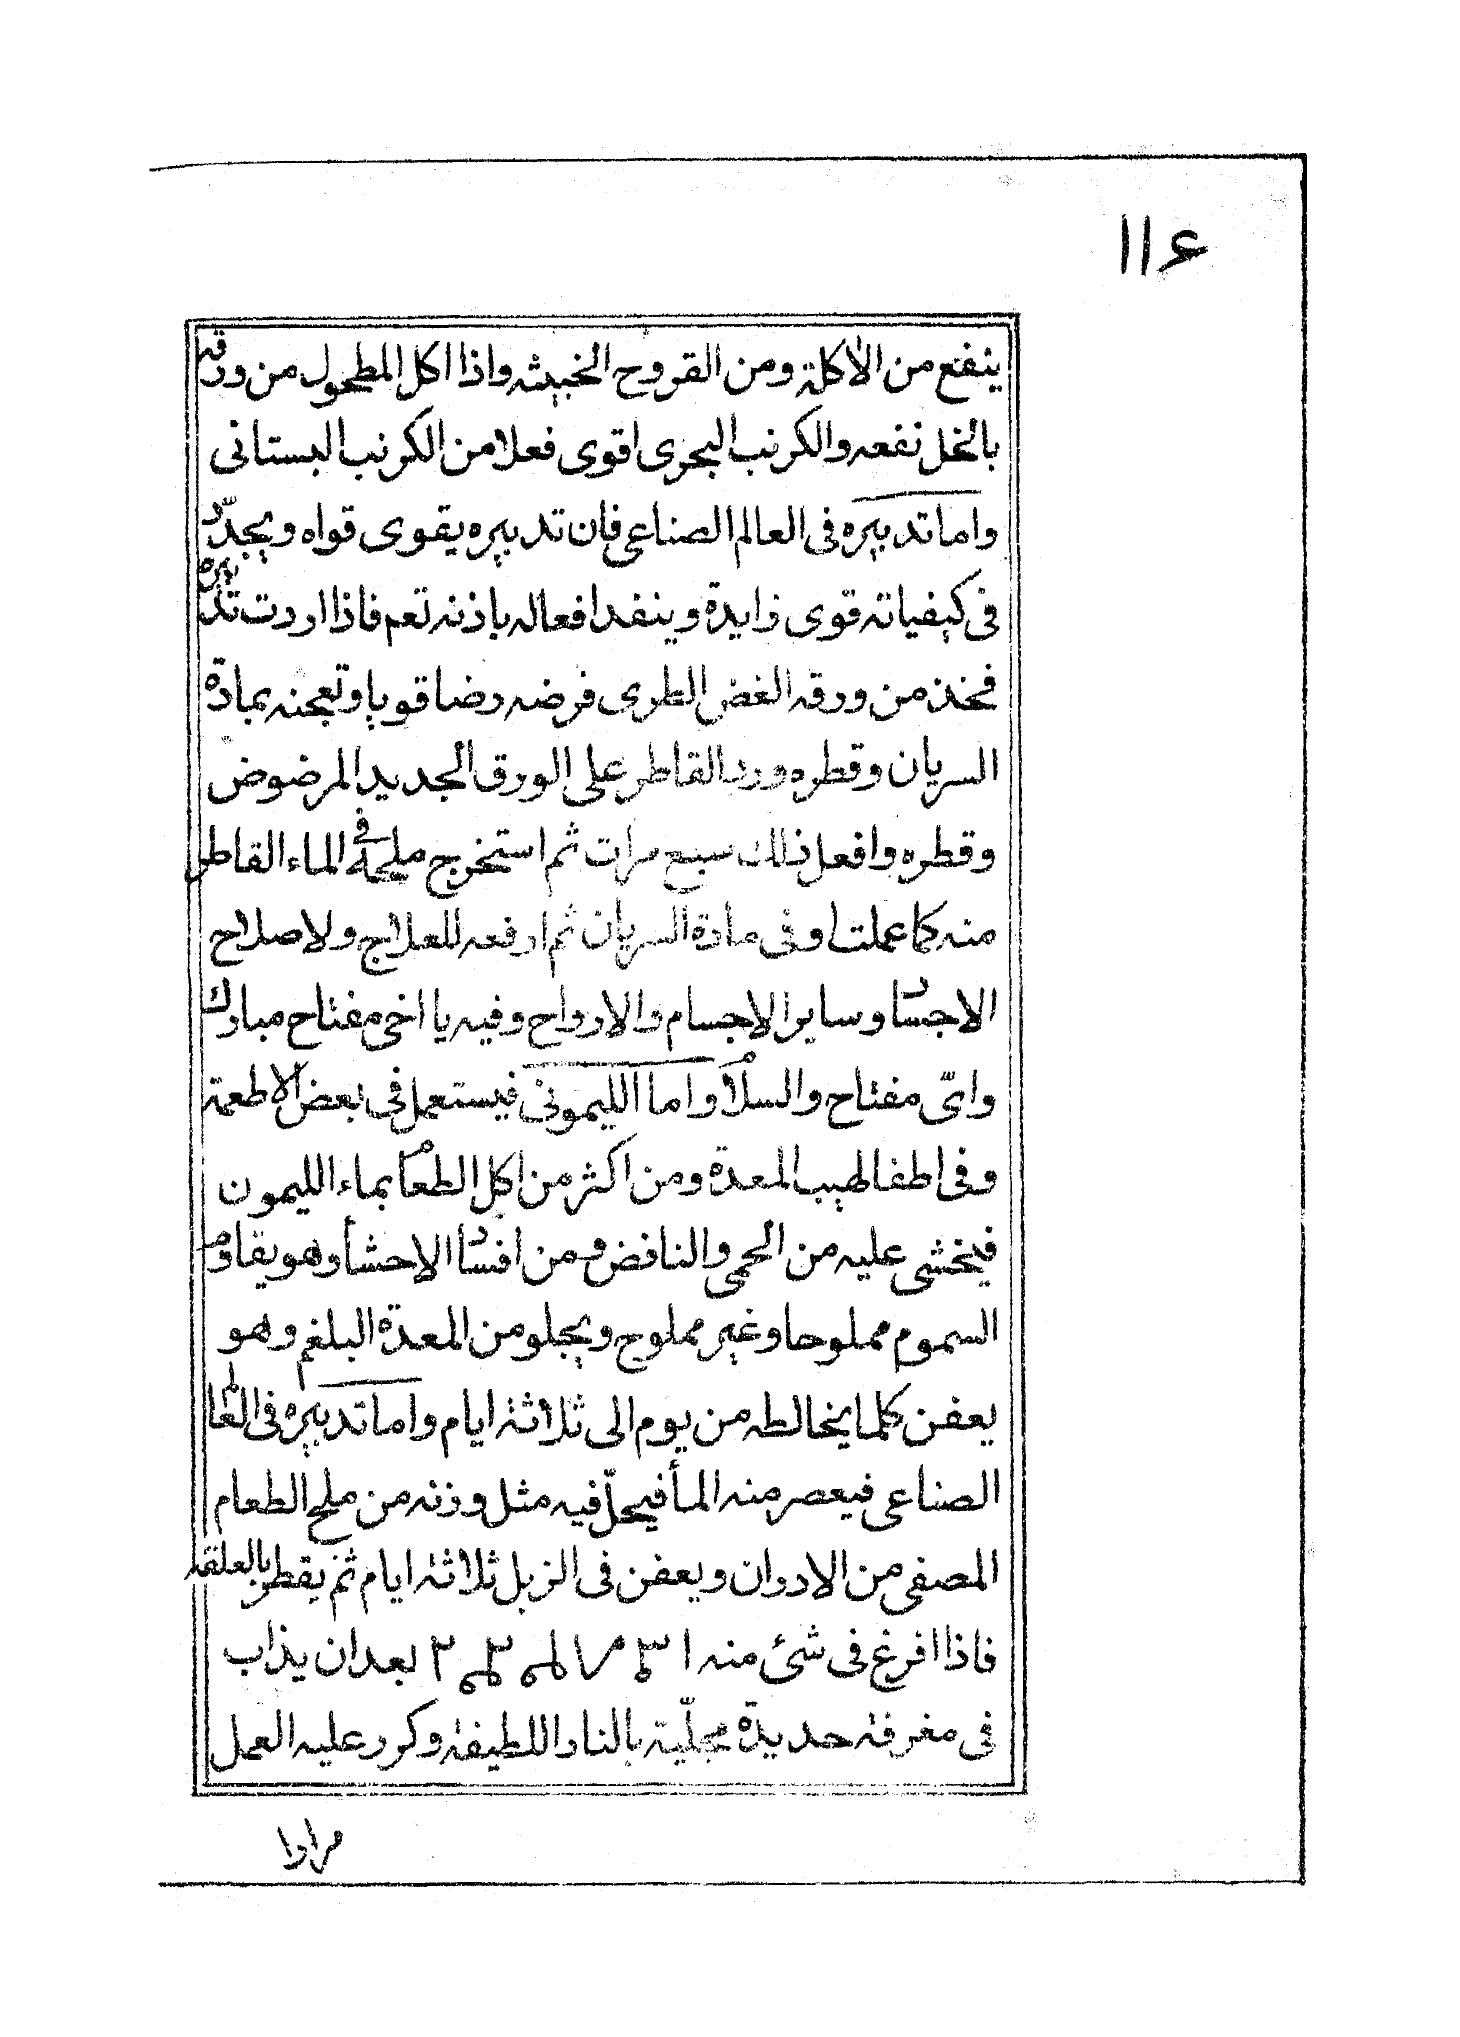 ١١٤
ينفع من الاكلة ومن القروح الخبيثه واذا اكل المطحول من ورقه
بالخل نفعه والكرنب البحرى اقوى فعلا من الكرنب البستانى
واما تدبيره فى العالم الصناعى فان تدبيره يقوى قواه ويجدّد
فى كيفياته قوى زايدة وينفد افعاله باذنه تعم فاذا اردت تدبيره
فخذ من ورقه الغض الطرى فرضه رضا قويا وتعجنه بمادة
السريان وقطره ورد القاطر على الورق الجديد المرضوض
وقطره وافعل ذلك سبع مرات ثم استخرج ملحه فى الماء القاطر
منه كما عملت وفى مادة السريان ثم ارفعه للعلاج ولاصلاح
الاجساد وساير الاجسام والارواح وفيه يا اخى مفتاح مبارك
واىّ مفتاح والسلام واما الليمونى فيستعمل فى بعض الاطعمة
وفى اطفا لهيب المعدة ومن اكثر من اكل الطعام بماء الليمون
فيخشى عليه من الحمى والنافض ومن افساد الاحشأ وهو يقاوم
السموم مملوحا وغير مملوح ويجلو من المعدة البلغم وهو
يعفن كلما يخالطه من يوم الى ثلاثة ايام واما تدبيره فى العالم
الصناعى فيعصر منه المأ فيحلّ فيه مثل وزنه من ملح الطعام
المصفى من الادران ويعفن فى الزبل ثلاثة ايام ثم يقطر بالعلقه
فاذا افرغ فى شئ منه بعد ان يذاب
فى مغرفة حديدة مجلّية بالنار اللطيفة وكرر عليه العمل
مرارا